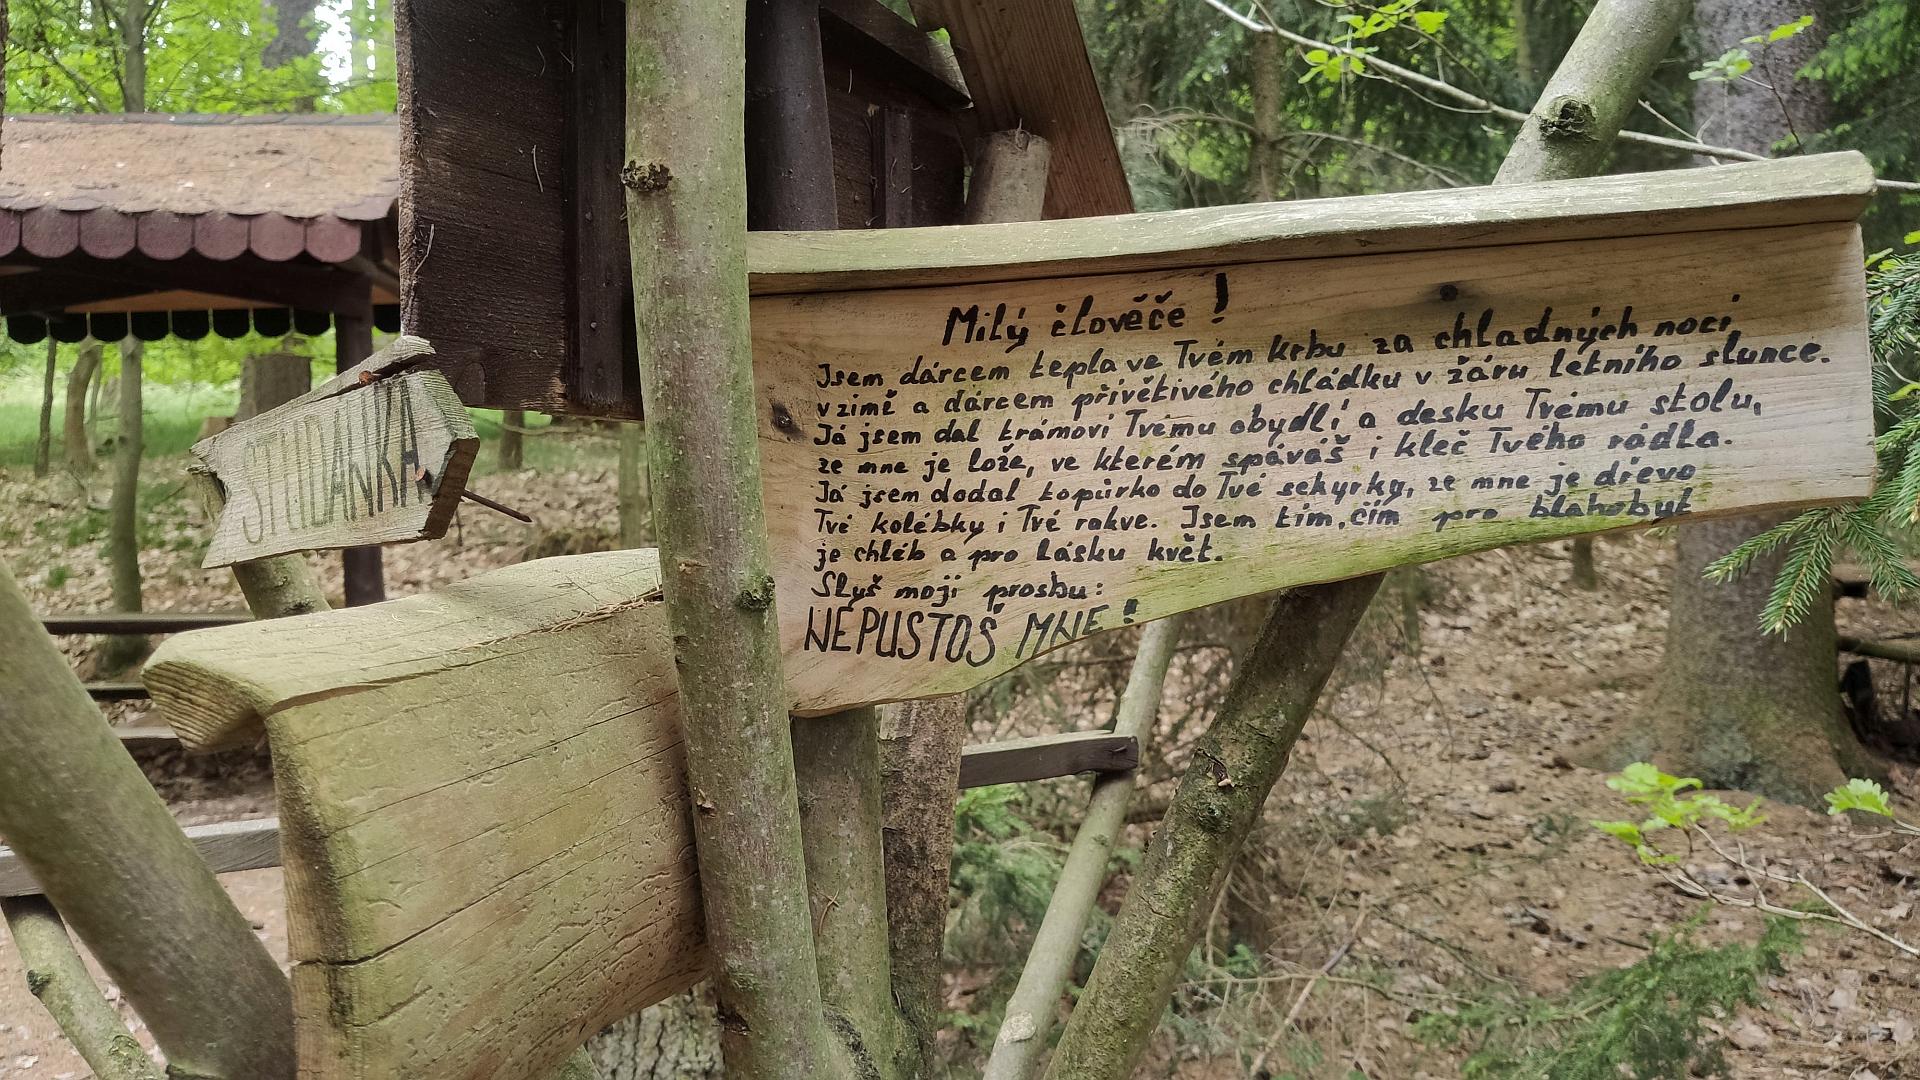 STUDÁNKA
Milý člověče!
Jsem dárcem tepla ve Tvém krbu za chladných nocí,
v zimě a dárcem přívětivého chládku v žáru letního slunce.
Já jsem dal trámoví Tvému obydlí a desku Tvému stolu,
ze mne je lože, ve kterém spáváš i kleč Tvého rádla.
Já jsem dodal topůrko do Tvé sekyrky, ze mne je dřevo
Tvé kolébky i Tvé rakve. Jsem tím, čím pro blahobyt
je chléb a pro lásku květ.
Slyš moji prosbu:
NEPUSTOŠ MNE!